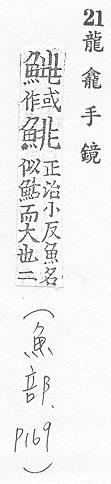 21 龍龕手鏡
或作
鮡
正治小反魚名
似鮎而大也二
(魚部. P169)